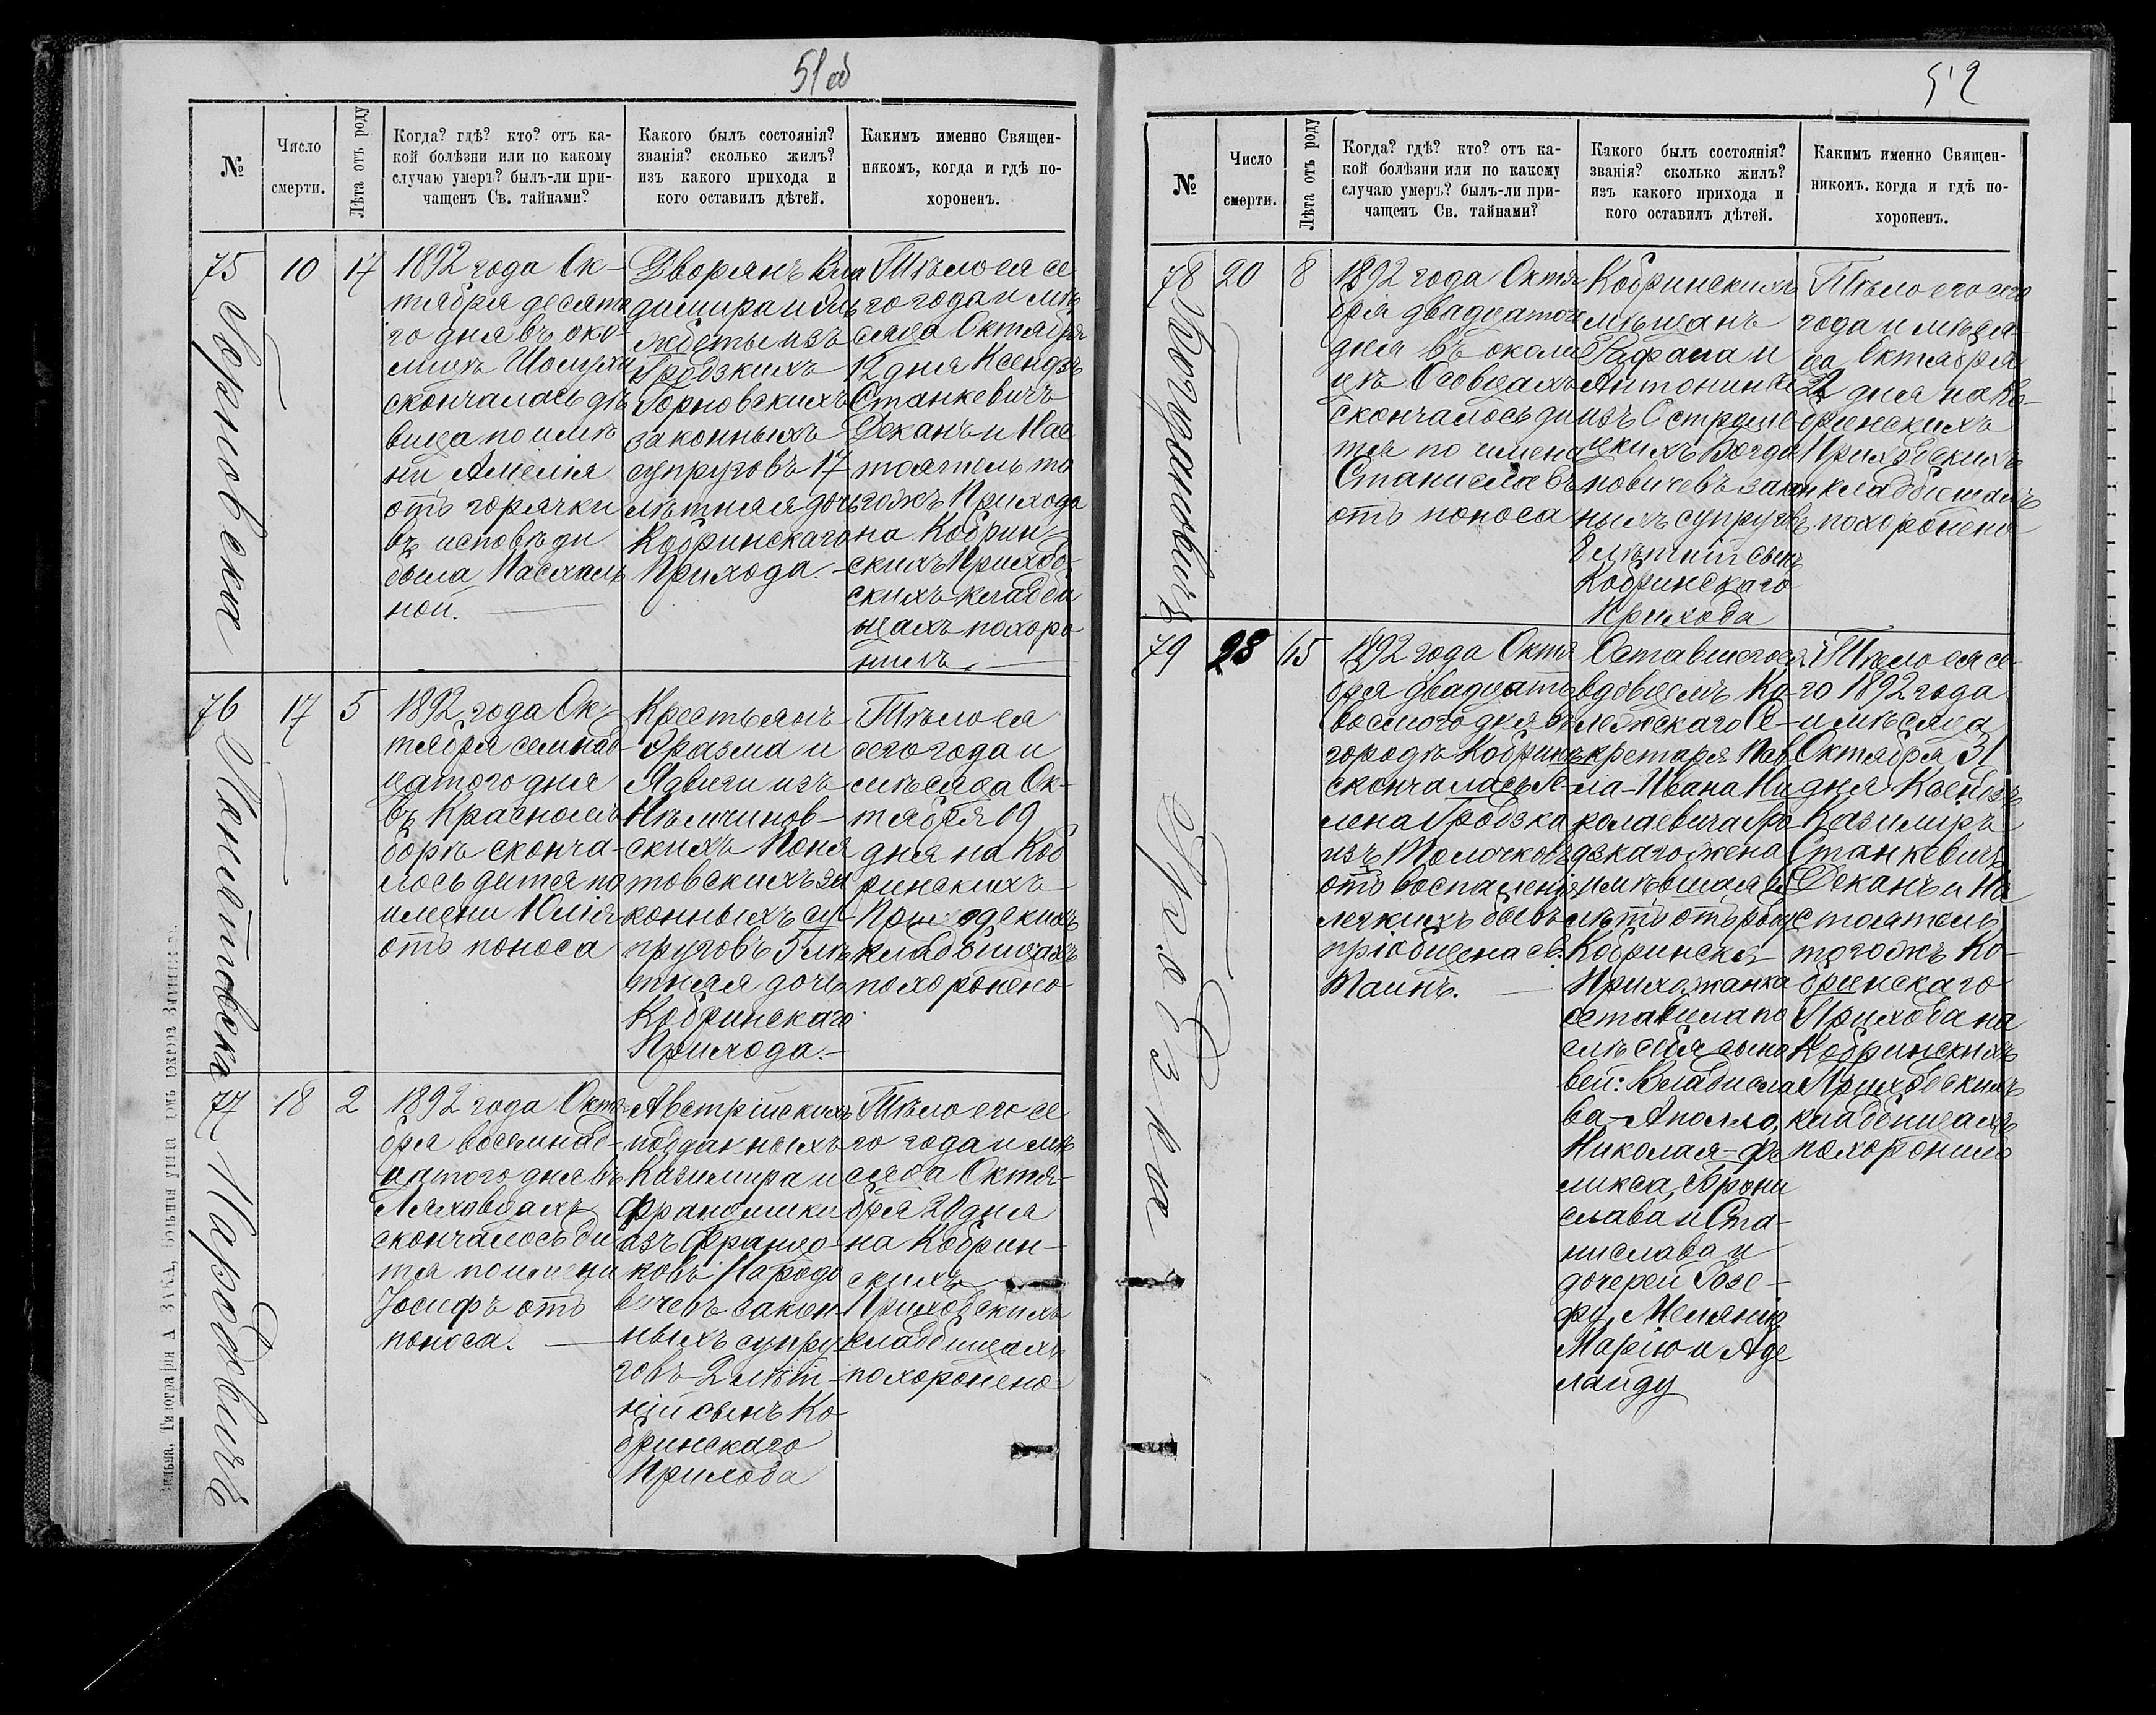 51об
№
Число
смерти.
Лѣта отъ роду
Когда? гдѣ? кто? отъ ка-
кой болѣзни или по какому
случаю умеръ? былъ-ли при-
чащенъ Св. тайнами?
Какого былъ состоянія?
званія? сколько жилъ?
изъ какого прихода и
кого оставилъ дѣтей.
Какимъ именно Священ-
никомъ, когда и гдѣ по-
хороненъ.
75
Горновска
10
17
1892 года Ок-
тября десята
го дня въ око
лицѣ Шолухи
скончалась дѣ
вица по име
ни Амелія
отъ горячки
въ исповѣди
была Пасхаль
ной.
Дворянъ Вла
димира и
изъ
Гродзкихъ
Горновскихъ
законныхъ
супруговъ 17
лѣтняя дочь
Кобринскаго
Прихода.
Тѣло ея се
го года и мѣ
сяца Октября
12 дня Ксендзъ
Станкевичъ
Деканъ и Нас
тоятель то
гожъ Прихода
на Кобрин-
скихъ Приход
скихъ кладби
щахъ похоро
нилъ.
76
Понятовска
17
5
1892 года Ок-
тября семнад-
цатого дня
въ Красномъ
боркѣ сконча-
лось дитя по
имени Юлія
отъ поноса
Крестьянъ
Эразма и
Ядвиги изъ
Нѣмчинов-
скихъ Поня
товскихъ за
конныхъ су-
пруговъ 5 лѣ
тняя дочь
Кобринскаго
Прихода.-
Тѣло ея
сего года и
мѣсяца Ок-
тября 19
дня на Коб
ринскихъ
Приходскихъ
кладбищахъ
похоронено
77
Народовичъ
18
2
1892 года Октя-
бря восемнад-
цатого дня въ
Ляховцахъ
скончалось ди
тя по имени
Іосифъ отъ
поноса.
Австрійскихъ
подданныхъ
Казимира и
Францишки
изъ
ковъ Народо
вичевъ закон-
ныхъ супру-
говъ 2 лѣт-
ній сынъ Ко-
бринскаго
Прихода
Тѣло его се
го года и мѣ
сяца Октя-
бря 20 дня
на Кобрин-
скихъ
Приходскихъ
кладбищахъ
похоронено
Вильна, Типографія А ЗАКА, Большая улица
52
№
Число
смерти.
Лѣта отъ роду
Когда? гдѣ? кто? отъ ка-
кой болѣзни или по какому
случаю умеръ? былъ-ли при-
чащенъ Св. тайнами?
Какого былъ состоянія?
званія? сколько жилъ?
изъ какого прихода и
кого оставилъ дѣтей.
Какимъ именно Священ-
никомъ. когда и гдѣ по-
хороненъ.
78
Богдановичъ
20
8
1892 года Октя-
бря двадцатого
дня въ околи
цѣ Осовцахъ
скончалось ди
тя по имени
Станиславъ
отъ поноса
Кобринскихъ
мѣщанъ
Рафала и
Антонины
изъ Остроме
цкихъ Богда
новичевъ закон
ныхъ супруговъ
8 лѣтній сынъ
Кобринскаго
Прихода
Тѣло его сего
года и мѣся
ца Октября
22 дня на Ко-
бринскихъ
Приходскихъ
кладбищахъ
похоронено
79
Гродзка
28
65
1892 года Октя
бря двадцать
восьмого дня въ
городѣ Кобринѣ
скончалась Ле-
лена Гродзка
изъ Толочковъ
отъ воспаленія
легкихъ бывъ
пріобщена св.
Таинъ.
Оставшегося
вдовцемъ Ко-
лежскаго Се-
кретаря Пав
ла-Ивана Ни
колаевича Гро
дзкаго жена
имѣвшая 65
лѣтъ отъ роду
Кобринская
Прихожанка
оставила по
слѣ себя сыно
вей: Владисла
ва-Аполло,
Николая-Фе
ликса, Брони
слава и Ста-
нислава и
дочерей Юзе-
фу, Меланію
Марію и Аде
лаиду
Тѣло ея се-
го 1892 года
и мѣсяца
Октября 31
дня Ксендзъ
Казимиръ
Станкевичъ
Деканъ и На
стоятель
тогожъ Ко-
бринскаго
Прихода на
Кобринскихъ
Приходскихъ
кладбищахъ
похоронилъ